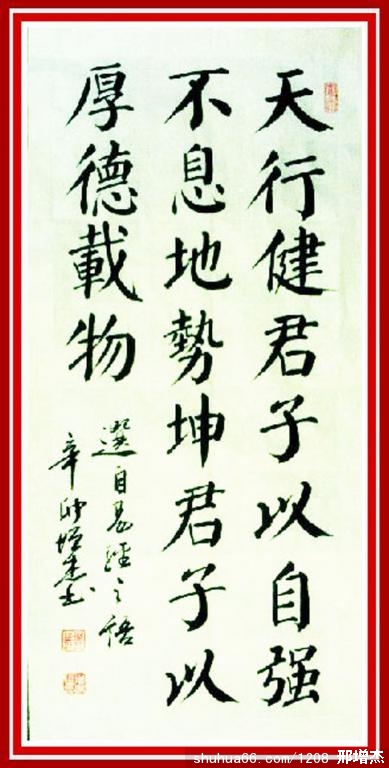 天行健君子以自强
不息地勢坤君子以
厚德載物
選自易經之語
辛卯增杰书
shuhua66.com/1208 邢增杰